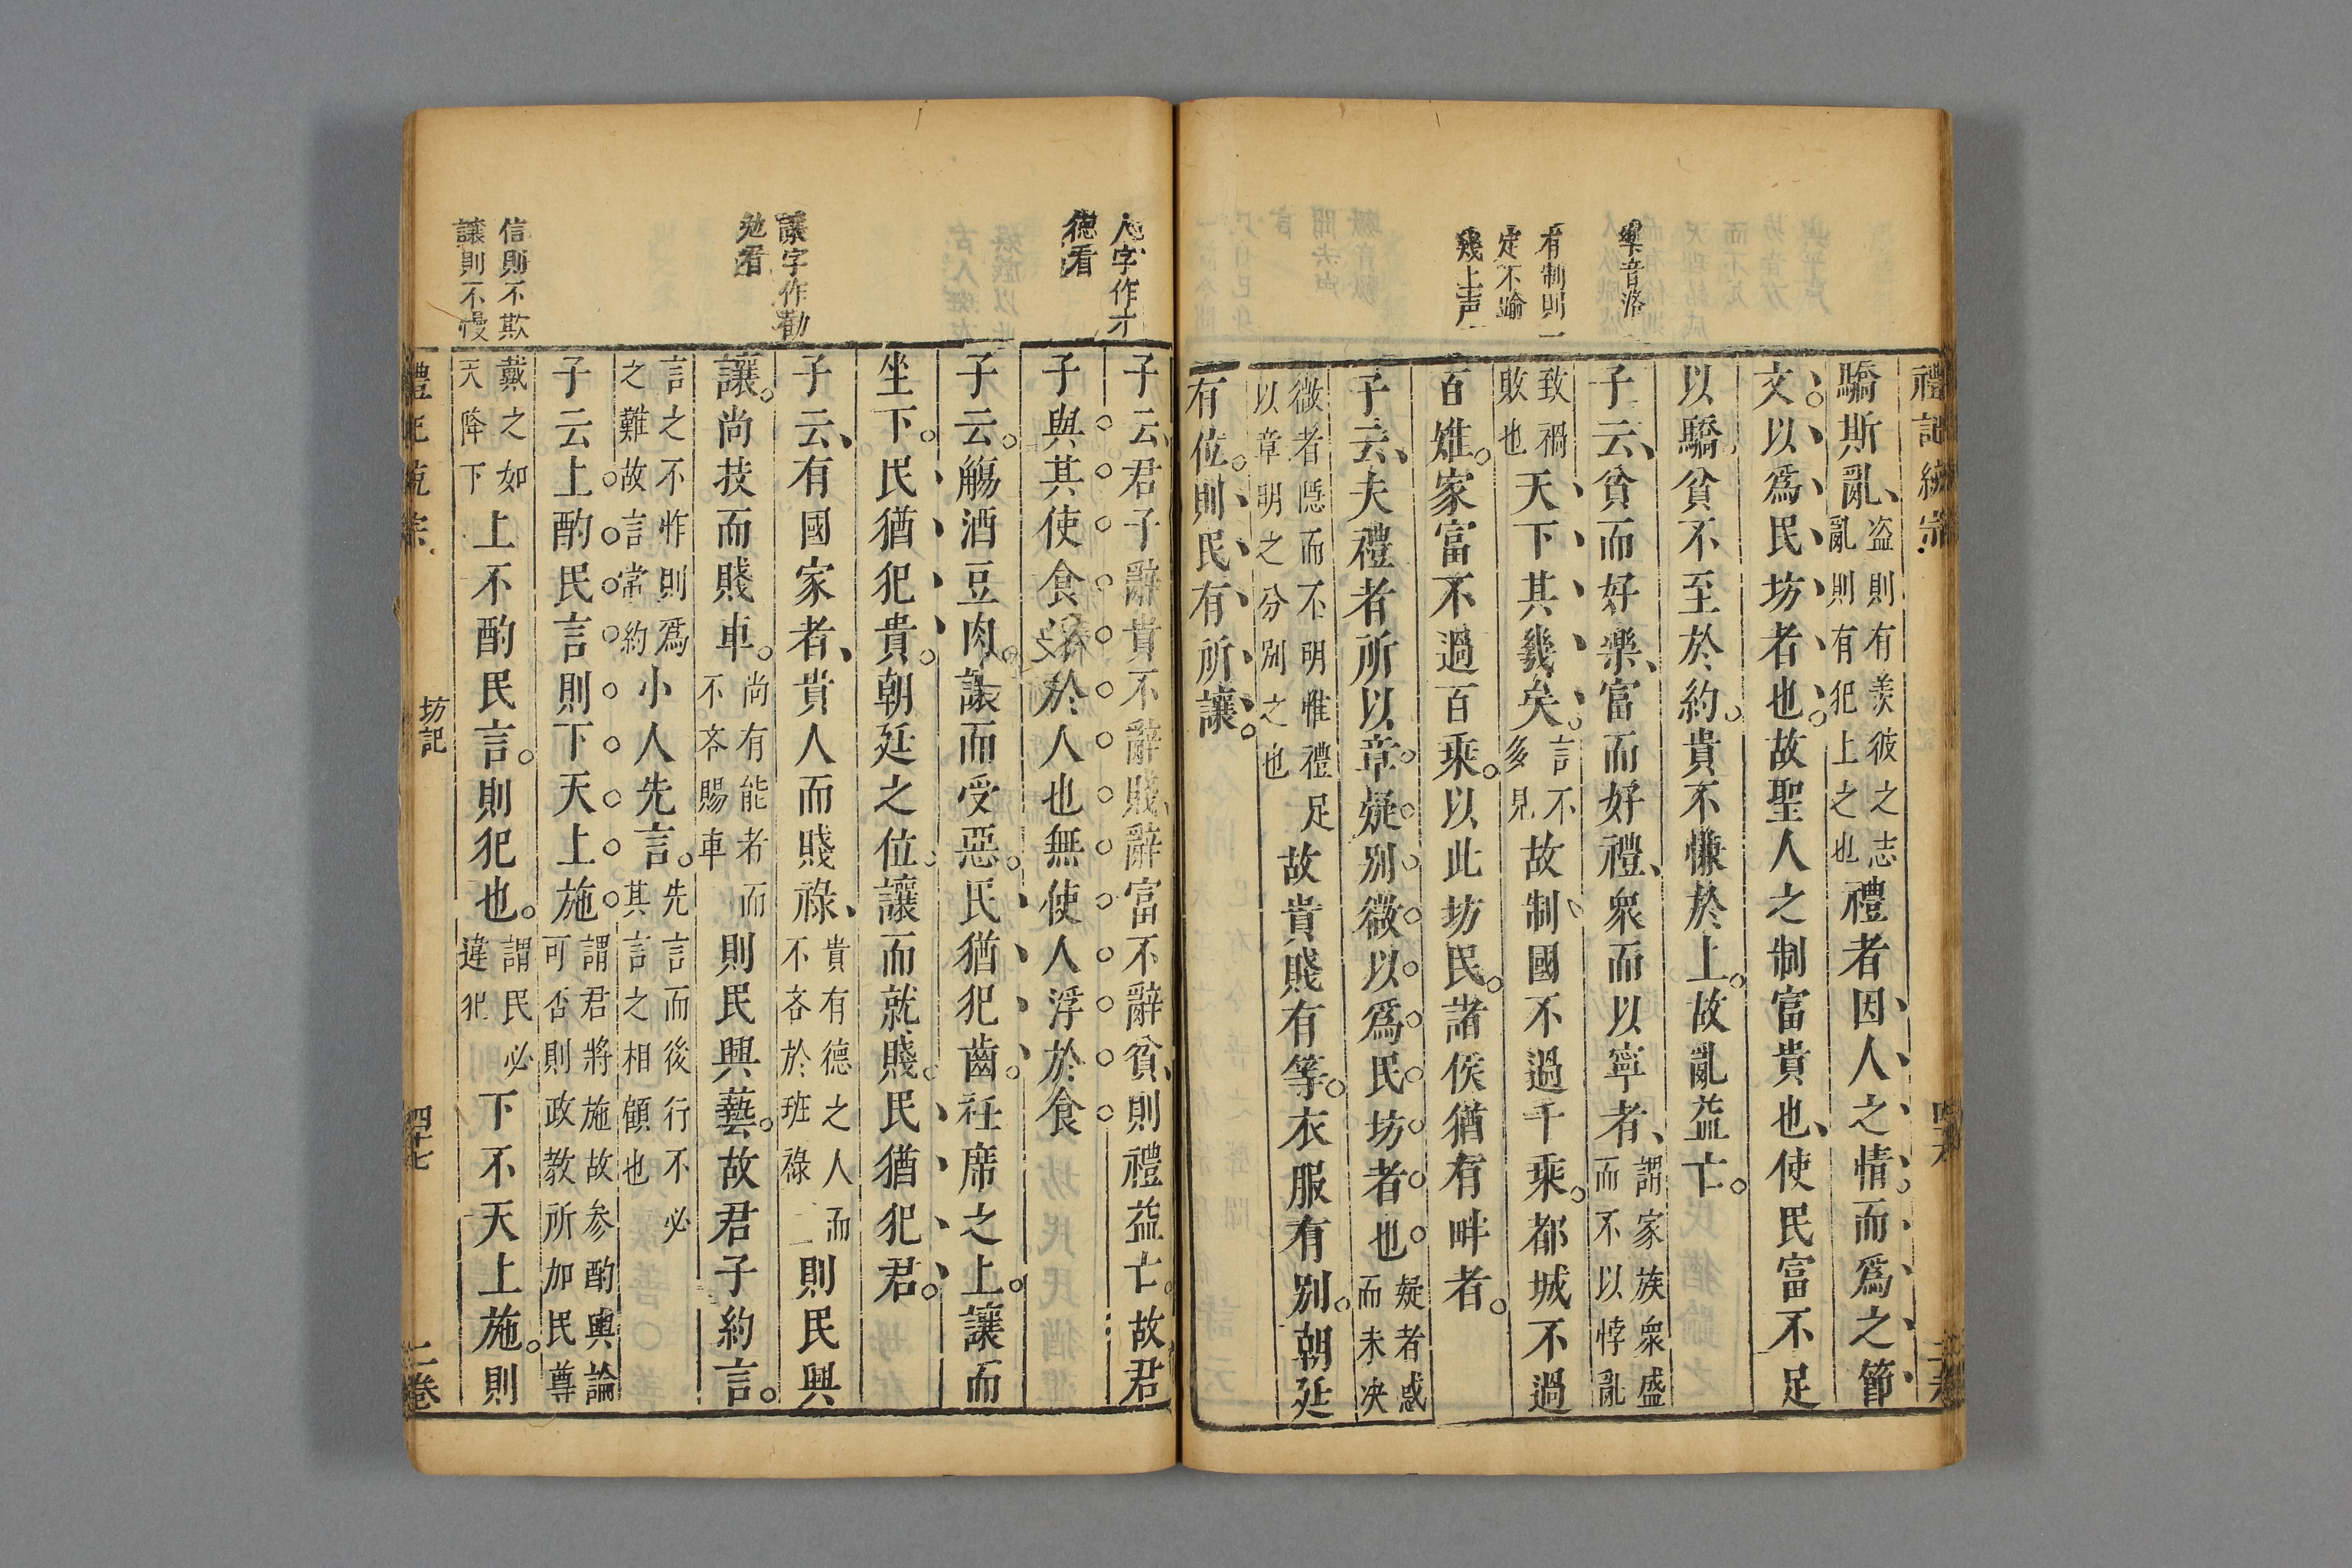 禮記統宗
樂音洛
有制則一
定不踰
幾上声
驕斯亂、盗則有羨彼之志亂則有犯上之也禮者因人之情而爲之節
文以爲民坊者也故聖人之制富貴也使民富不足
以驕貧不至於約貴不慊於上故亂益亡
子云貧而好樂富而好禮衆而以寧者謂家族衆盛而不以悖亂
致禍敗也天下其幾矣言不多見故制國不過千乘都城不過
百雉家富不過百乘以此坊民諸侯猶有畔者
子云夫禮者所以章疑别微以爲民坊者也疑者惑而未决
微者隠而不明惟禮足以章明之分别之也故貴賤有等衣服有别朝廷
有位則民有所讓
人字作才
德看
讓字作勸
勉看
信則不欺
讓則不慢
子云君子辭貴不辭賤辭富不辭貧則禮益亡故君
子與其使食浮於人也無使人浮於食
子云觴酒豆肉讓而受惡民猶犯齒衽席之上讓而
坐下民猶犯貴朝廷之位讓而就賤民猶犯君
子云有國家者貴人而賤祿貴有德之人而不吝於班祿則民興
讓尚技而賤車尚有能者而不吝賜車則民興藝故君子約言
言之不怍則爲之難故言常約小人先言先言而後行不必其言之相顧也
子云上酌民言則下天上施謂君將施故参酌輿論可否則政教所加民尊
戴之如天降下上不酌民言則犯也謂民必違犯下不天上施則
坊記
四十七
二卷